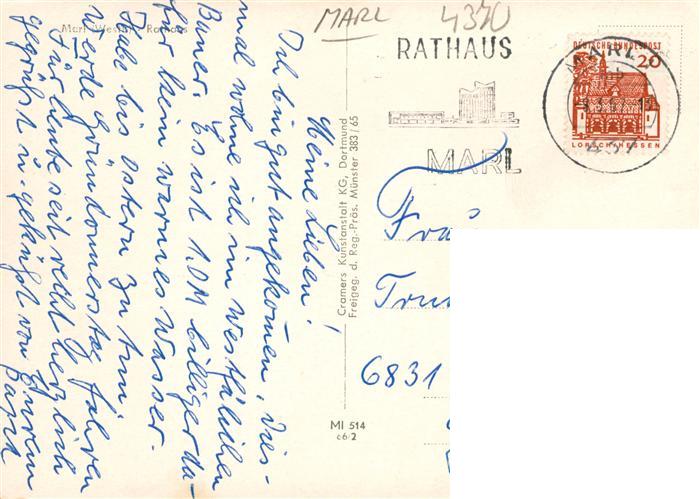 Marl (Westf.) Rathaus
MARL 4370
RATHAUS
MARL
MARL
DEUTSCHE BUNDESPOST
20
LORSCH/HESSEN
437
Meine Lieben!
Ich bin gut angekommen, dies-
mal wohne ich im Westfälischen
Bauer. Es ist 1.DM billiger da-
für kein warmes Wasser.
Habe bis Ostern zu tun
werde Gründonnerstag fahren
Für heute seit recht herzlich
gegrüßt u. geküßt von Eurem
Cramers Kunstanstalt KG, Dortmund
Freigeg. d. Reg.-Präs. Münster 383/65
MI 514
66/2
6831